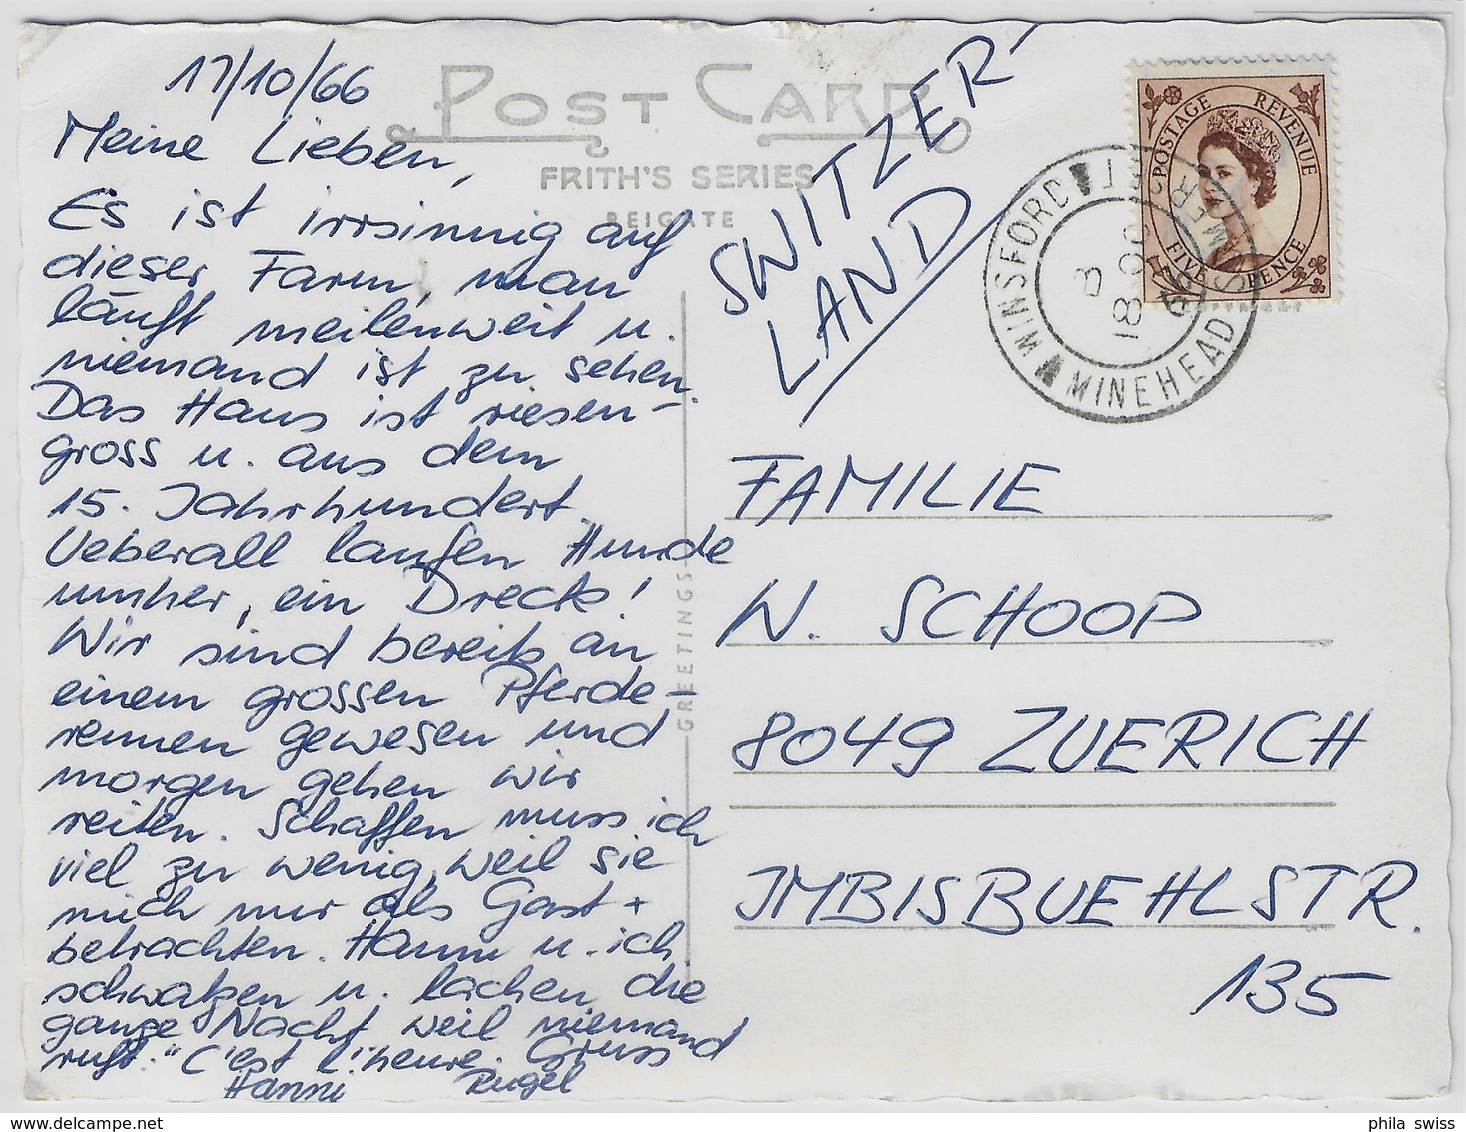 17/10/66
POST CARD
FRITH'S SERIES
REIGATE
Meine Lieben,
Es ist irrsinnig auf
dieser Farm, man
läuft meilenweit u.
niemand ist zu sehen.
Das Haus ist riesen-
gross u. aus dem
15. Jahrhundert.
Ueberall laufen Hunde
umher, ein Dreck!
Wir sind bereits an
einem grossen Pferde-
rennen gewesen und
morgen gehen wir
reiten. Schaffen muss ich
viel zu wenig, weil sie
mich nur als Gast
betrachten. Hanni u. ich
schwatzen u. lachen die
ganze Nacht weil niemand
ruft: "C'est l'heure. Gruss
Hanni Rugel
GREETINGS
SWITZER-
LAND
POSTAGE REVENUE
FIVE PENCE
WINSFORD
MINEHEAD SOMERSET
FAMILIE
W. SCHOOP
8049 ZUERICH
IMBISBUEHLSTR.
135
phila swiss